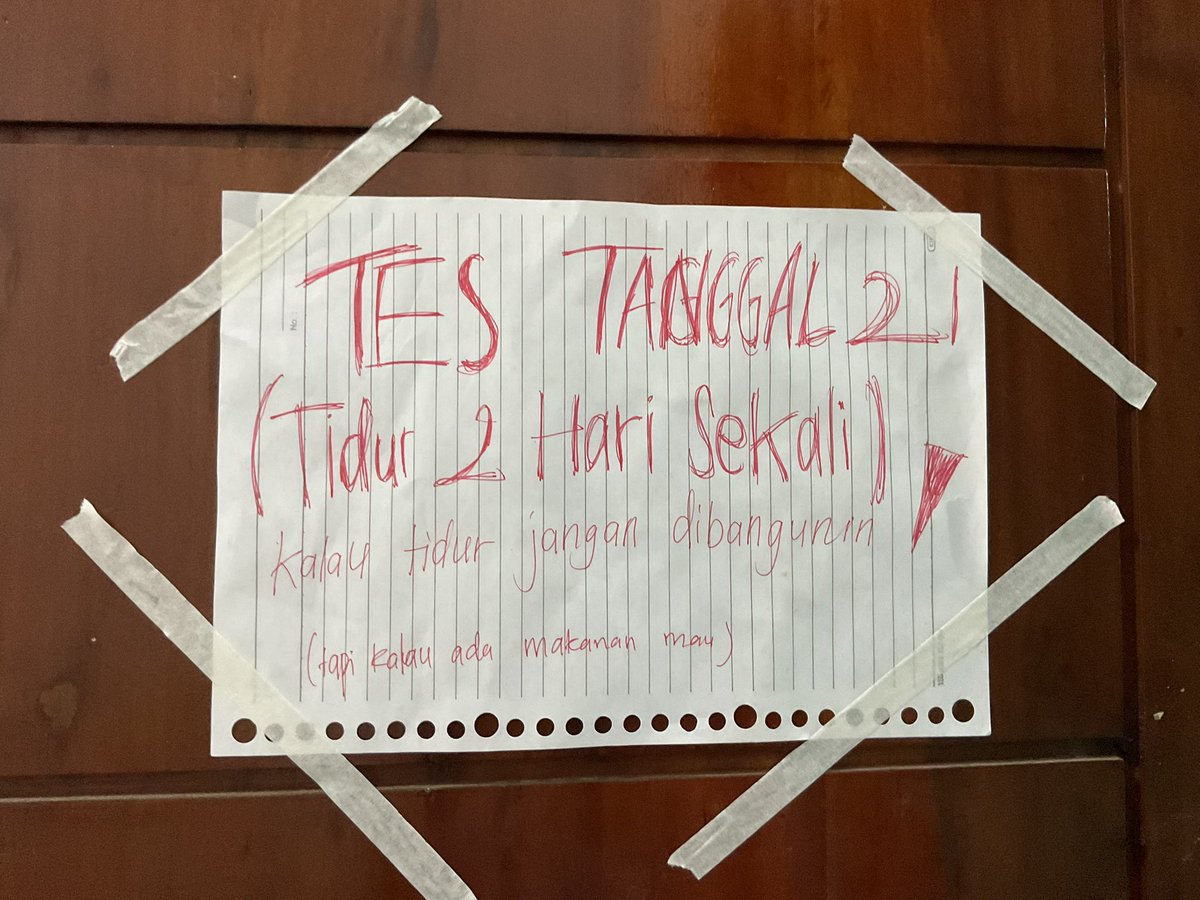 TES TANGGAL 21
(Tidur 2 Hari Sekali) !
kalau tidur jangan dibangunin
(tapi kalau ada makanan mau)
No.